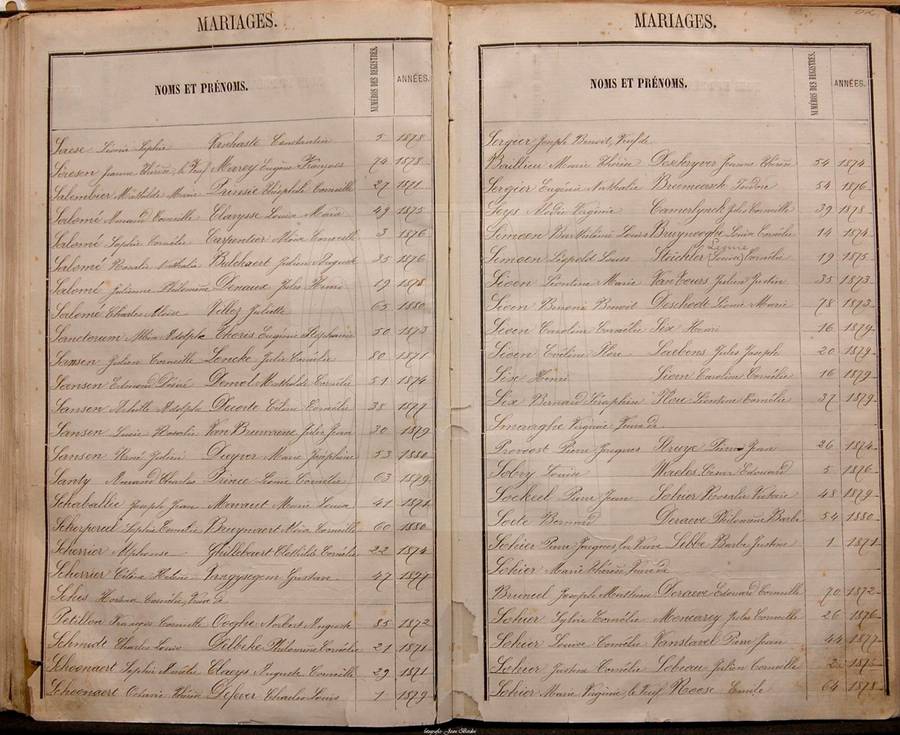 MARIAGES.
NOMS ET PRÉNOMS. NUMÉROS DES REGISTRES. ANNÉES.
Léonie Sophie Constantin 5 1878
Jeanne Thérèse le Veuf Eugène François 74 1878
Salembier Mathilde Marie Théophile Corneille 27 1871
Salomé Amand Corneille Clarysse Louise Marie 49 1875
Salomé Sophie Cornélie Carpentier Aloïse Corneille 3 1876
Salomé Rosalie Nathalie Julien August 35 1876
Salomé Julienne Philomène Denause Jules Henri 19 1878
Salomé Charles Aloïse Villez Juliette 65 1880
Sanctorum Albin Adolphe Thoris Eugénie Stéphanie 50 1873
Sansen Julien Corneille Loncke Julie Cornélie 80 1871
Sansen Edmond Désiré Demol Mathilde Cornélie 51 1874
Sansen Achille Adolphe Decorte Céline Cornélie 38 1877
Sansen Lucie Rosalie Jules Jean 30 1879
Sansen René Julien Deyver Marie Joséphine 53 1880
Santy Amand Charles Prince Léonie Cornélie 63 1879
Schaballie Joseph Jean Marie Louise 41 1871
Scherpereel Sophie Cornélie Bruynaert Aloïse Corneille 60 1880
Scherrier Alphonse Ghillebaert Clothilde Cornélie 22 1874
Scherrier Céline Hélène Vangysegem Gustave 47 1877
Hortense Cornélie, Veuve de
Petillon François Corneille Cooghe Norbert Auguste 85 1872
Schmidt Charles Louis Delbeke Philomène Cornélie 21 1871
Schoonaert Sophie Amélie Claeys Auguste Corneille 29 1871
Schoonaert Octavie Thérèse Defever Charles Louis 1 1879
MARIAGES.
NOMS ET PRÉNOMS. NUMÉROS DES REGISTRES. ANNÉES.
Sergier Joseph Benoit, Veuf de
Baillieu Marie Thérèse Dextryver Jeanne Thérèse 54 1874
Sergier Eugénie Nathalie Breemeersch Isidore 54 1876
Seys Elodie Virginie Camerlynck Jules Corneille 39 1878
Simoen Barthélémi Louis Bruynooghe Louise Cornélie 14 1874
Léonie
Simoen Léopold Louis Steichler Louise Cornélie 19 1875
Sioen Léontine Marie Van Tours Julien Justin 35 1873
Sioen Benoni Benoit Deschodt Léonie Marie 78 1873
Sioen Caroline Cornélie Six Henri 16 1879
Sioen Eveline Flore Saelens Jules Joseph 20 1879
Six Henri Sioen Caroline Cornélie 16 1879
Six Bernard Séraphin Léontine Cornélie 37 1879
Smaeghe Virginie Veuve de
Provoost Pierre Jacques Struye Pierre Jean 26 1874
Sobry Louise Waeles César Edouard 5 1876
Sockeel Pierre Jean Sohier Rosalie Victoire 48 1879
Soete Bernard Deraeve Philomène Barbe 54 1880
Sohier Pierre Jacques, la Veuve Libbe Barbe Justine 1 1871
Sohier Marie Thérèse, Veuve de
Bruneel Joseph Mathieu Deraeve Edouard Corneille 70 1872
Sohier Sylvie Cornélie Jules Corneille 26 1876
Sohier Louise Cornélie Vanstavel Pierre Jean 44 1877
Sohier Justine Cornélie Lobeau Julien Corneille
Sohier Marie Virginie, le Veuf Roose Emile 64 1878